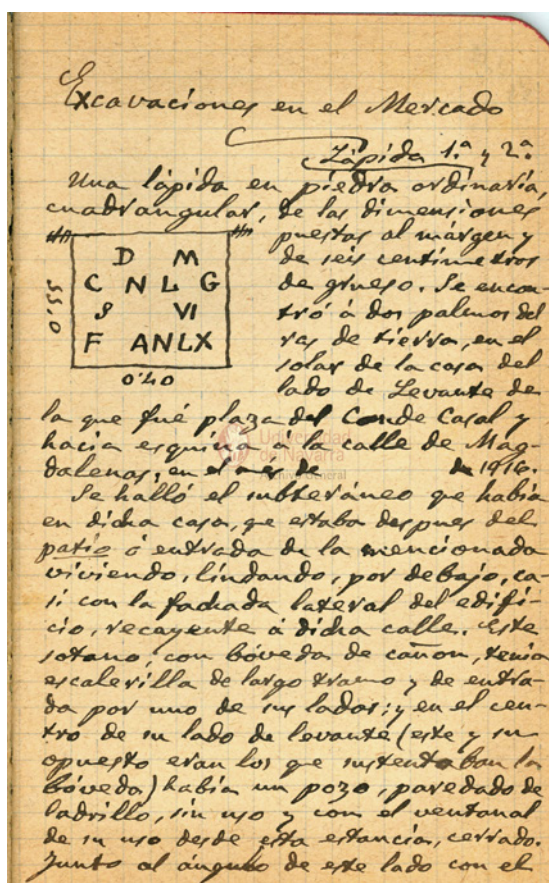 Excavaciones en el Mercado
Lápida 1.ª y 2.ª
Una lápida en piedra ordinaria,
cuadrangular, de las dimensiones
puestas al márgen y
de seis centímetros
de grueso. Se encon-
tró á dos palmos del
ras de tierra, en el
solar de la casa del
lado de Levante de
D M
C N L G
S VI
F ANLX
55,0
0'40
la que fué plaza del Conde Casal y
hacia esquina á la calle de Mag-
dalenas, en el mes de de 1916.
Se halló el subteráneo que había
en dicha casa, qe estaba despues del
patio ó entrada de la mencionada
viviendo, lindando, por debajo, ca-
si con la fachada lateral del edifi-
cio, recayente á dicha calle. Este
sotano, con bóveda de cañon, tenia
escalerilla de largo tramo y de entra-
da por uno de sus lados; y en el cen-
tro de su lado de levante (este y su
opuesto eran los que sustentaban la
bóveda) había un pozo, paredado de
ladrillo, sin uso y con el ventanal
de su uso desde esta estancia, cerrado.
Junto al ángulo de este lado con el
Universidad
de Navarra
Archivo General